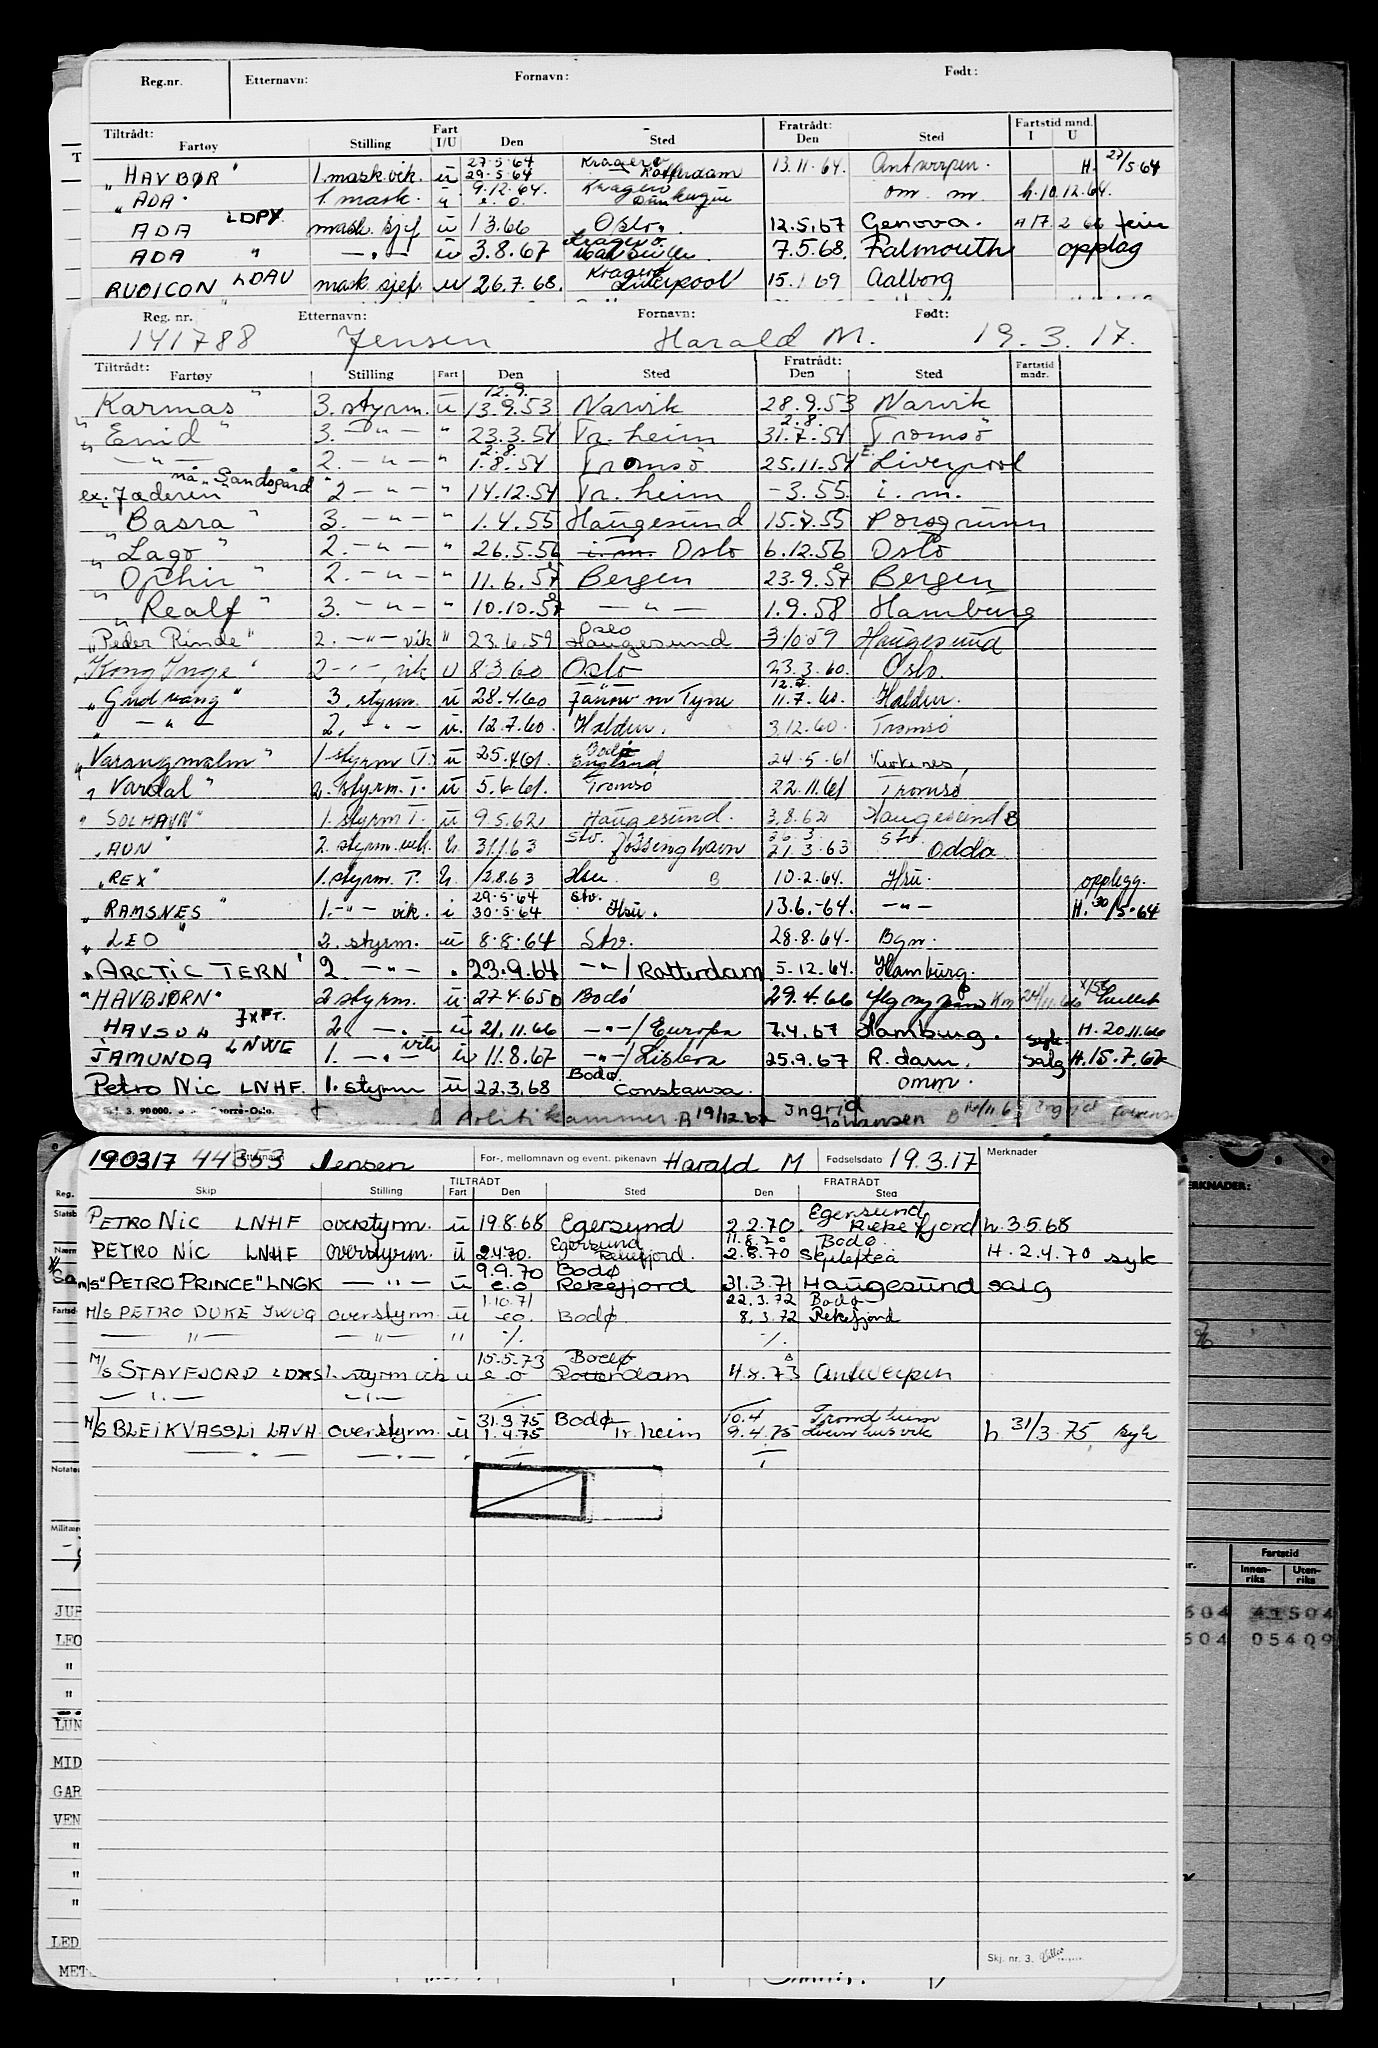 Reg.nr. Etternavn: Fornavn: Født:
Tiltrådt: Fartøy Stilling Fart I/U Den Sted Fratrådt: Den Sted Fartstid mnd. I U
27.5.64 Kragerø
"HAVBØR" 1. mask. vik. u 29.5.64 Rotterdam 13.11.64. Antwerpen. H. 27/5 64
"ADA" 1. mask. u 9.12.64. Kragerø om. m. h. 10.12.64.
ADA LDPY mask. sjef u 1.3.66 Oslo. 12.5.67 Genova. A 17.2 66 ferie
ADA " —"— u 3.8.67 Kragerø 7.5.68. Falmouth opplag
RUBICON LDAU mask. sjef. u 26.7.68. Kragerø Liverpool 15.1.69 Aalborg
Reg. nr. Etternavn: Fornavn: Født:
141788 Jensen Harald M. 19.3.17.
Tiltrådt: Fartøy Stilling Fart Den Sted Fratrådt: Den Sted Fartstid mndr.
12.9.
"Karmas" 3. styrm. u 13.9.53 Narvik 28.9.53 Narvik
2.8.
"Enid" 3. —"— " 23.3.54 Tr. heim 31.7.54 Tromsö
2.8.
—"— 2. —"— " 1.8.54 Tromsö 25.11.54 E. Liverpool
nå "Sandsgård"
ex. "Jæderen" 2 —"— " 14.12.54 Tr. heim -3.55 i. m.
"Basra" 3. —"— " 1.4.55 Haugesund 15.7.55 Porsgrunn
"Lago" 2. —"— " 26.5.56 i. m. Oslo 6.12.56 Oslo
2. —"— " 11.6.58 Bergen 23.9.58 Bergen
"Realf" 3. —"— " 10.10.58 —"— 1.9.58 Hamburg
Oslo
"Peder Rinde" 2. —"— vik " 23.6.59 Haugesund 3/10 59 Haugesund
"Kong Inge" 2 —"— vik u 8.3.60 Oslo 23.3.60. Oslo.
12.7.
"Gudvang" 3. styrm. u 28.4.60 Jarrow m Tyne 11.7.60. Halden.
—"— 2. —"— u. 12.7.60. Halden. 3.12.60. Tromsö
Bodø
"Varangmalm" 1. styrm T. u 25.4.61. England 24.5.61 Kirkenes,
"Vardal" 2. styrm. T. u 5.6.61. Tromsö 22.11.61 Tromsö
"SOLHAVN" 1. styrm T. u 9.5.62 Haugesund. 3.8.62 Haugesund B
26.3.
"AUN" 2. styrm. vik. u. 31.1.63 Stv. Jössinghavn 21.3.63 Stv Odda
"REX" 1. styrm. T. u. 12.8.63 Hsu. B 10.2.64. Hsu. opplegg.
29.5.64 Stv.
"RAMSNES" 1. —"— vik. i 30.5.64 Hsu. 13.6.-64. —"— H. 30/5.64
"LEO" 2. styrm. u 8.8.64 Stv. 28.8.64. Bgn.
"ARCTIC TERN" 2. —"— " 23.9.64 —"—/Rotterdam 5.12.64. Hamburg.
"HAVBJØRN" 2 styrm. u. 27.4.65 D Bodö 29.4.66
2. —"— u 21.11.66 —"—/Europa 7.4.67 Hamburg. syk. H. 20.11.66
JAMUNDA LNWE 1. —"— vik u 11.8.67 —"—/Lisboa 25.9.67 R.dam. salg H. 15.7.67
Petro Nic LNHF. 1. styrm u 22.3.68 Bodø. Constansa. omm.
Skj. 3. 90 000.
Politikammer. B 19/12.67 Ingrid Johansen
190317 44353 Etternavn Jensen For-, mellomnavn og event. pikenavn Harald M Fødselsdato 19.3.17 Merknader
TILTRÅDT FRATRÅDT
Skip Stilling Fart Den Sted Den Sted
Egersund
PETRO NIC LNHF overstyrm. u 19.8.68 Egersund 2.2.70. Rekefjord h. 3.5.68
Egersund 11.8.70 Bodø.
PETRO NIC LNHF overstyrm. u 2.4.70. Rekefjord. 2.8.70 H. 2.4.70 syk
9.9.70 Bodø
M/S "PETRO PRINCE" LNGK —"— u e.o Rekefjord 31.3.71 Haugesund salg
1.10.71 22.3.72 Bodø
M/S PETRO DUKE JWUG overstyrm. u eo. Bodø 8.3.72 Rekefjord
—"— —"— " ./. ./.
15.5.73 Bodø
M/S STAVFJORD LDXS 1. styrm vik u e.o Rotterdam 4.8.73 Antwerpen
—"— —"—
31.3.75 Bodø 10.4 Trondheim
M/S BLEIKVASSLI LAVH overstyrm. u 1.4.75 Tr.heim 9.4.75 h 31/3.75 syk
—"— —"—
Skj. nr. 3.
MERKNADER:
Fartstid
Innen-riks Uten-riks
604 41504
604 05409
JUP
LEO
"
"
LUN
MID
GAR
VEN
"
"
"
LED
MET